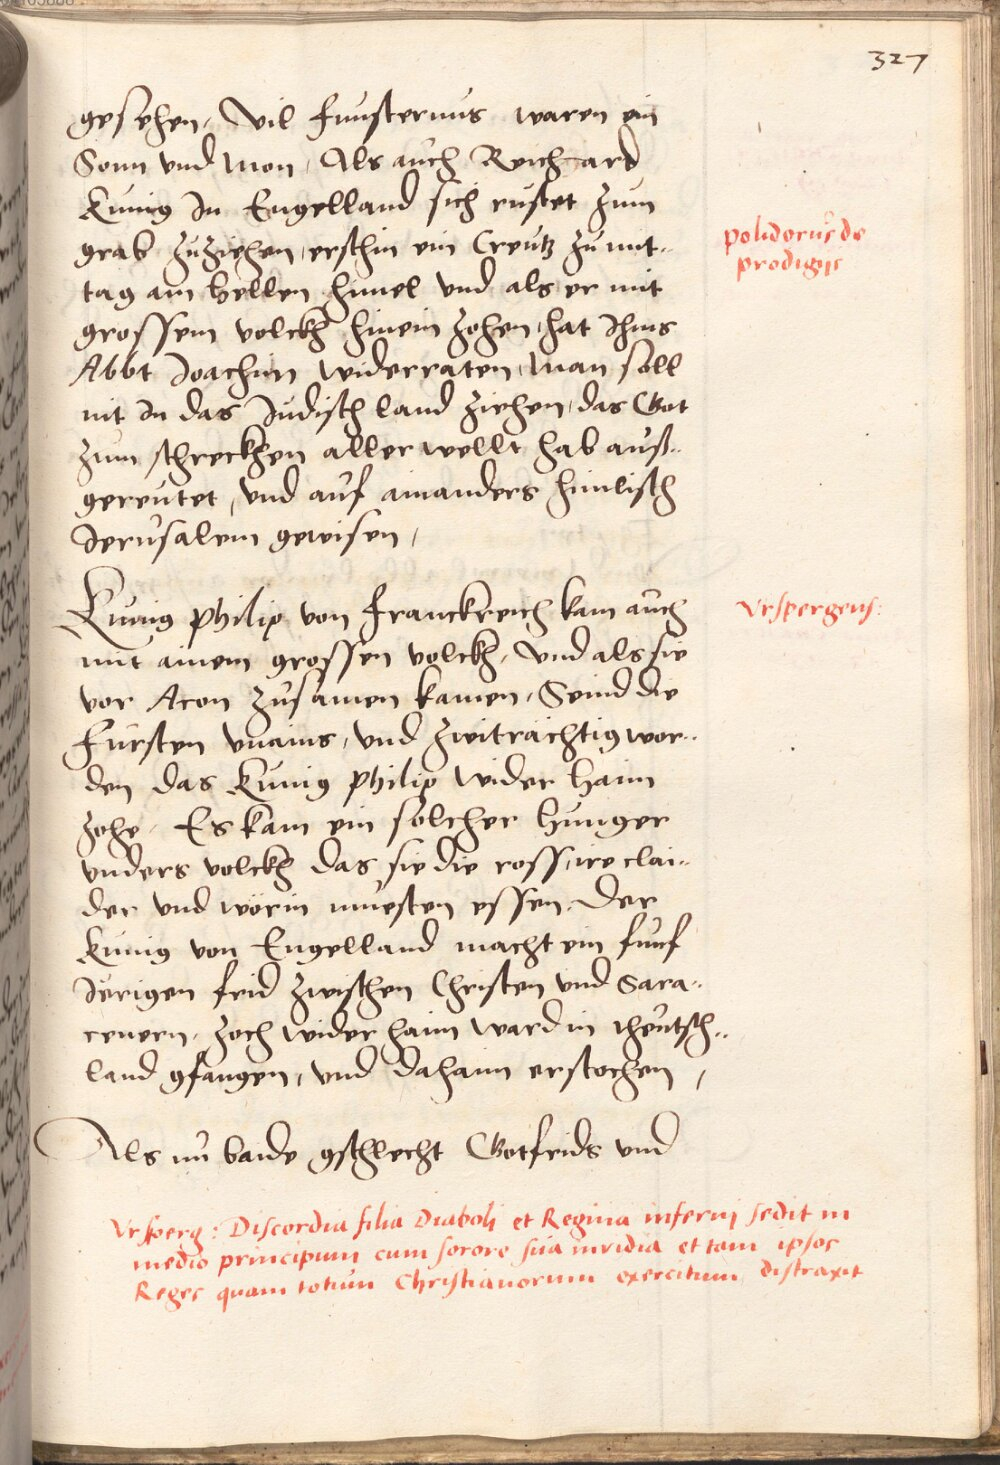 327
gesehen, Vil finsternus waren ein
Sonn vnd Mon, Als auch Reichard
Kunig In Engelland sich rustet zum
grab zuziehen, erschin ein Creutz zu mit-
tag am hellen himel vnd als er mit
grossem volckh hinein zohen, hat Ihms
Abbt Joachim widerraten, Man soll
nit In das Judisch land ziehen, das Got
zum schreckhen aller wellt hab auß-
gereutet, vnd auf ainanders himlisch
Jerusalem gewisen,
polidorus de
prodigijs
Kunig philip von Franckreich kam auch
mit ainem grossen volckh, Vnd als sie
vor Acon zusamen kamen, Seind die
Fursten vnains, vnd zwiträchtig wor-
den das Kunig philip wider haim
zohe, Es kam ein solcher hunger
vnders volckh das sie die ross, ire clai-
der vnd wörin muesten essen, Der
Kunig von Engelland macht ein funf
Jerigen frid zwischen Christen vnd Sara-
cenern, zoch wider haim ward in theutsch-
land gfangen, vnd dahaim erstochen,
Vrspergens:
Als nu baide gschlecht Gotfrids vnd
Vrsperg: Discordia filia Diaboli et Regina inferni sedit in
medio principum cum sorore sua invidia et tam ipsos
Reges quam totum Christianorum exercitum distraxit